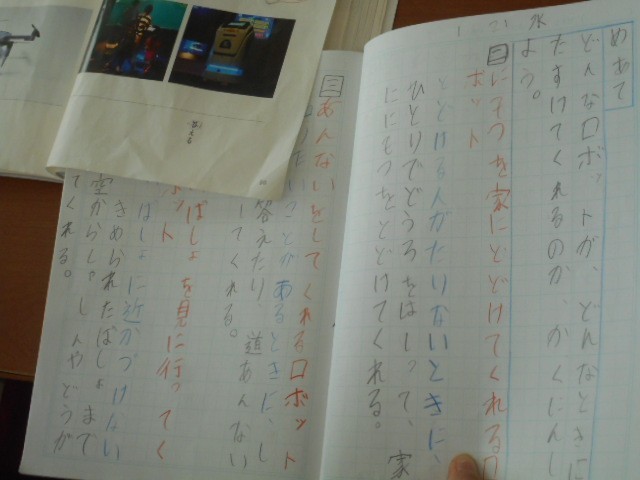 1 21 水
めあて
どんなロボットが、どんなときに
たすけてくれるのか、かくにんし
よう。
二 にもつを家にとどけてくれるロ
ボット
とどける人がたりないときに、
ひとりでどうろをはしって、家
ににもつをとどけてくれる。
三 あんないをしてくれるロボット
ことがあるときに、し
答えたり、道あんない
してくれる。
ばしょを見に行ってく
ット
ばしょに近かづけない
きめられたばしょまで
空からしゃしんやどうが
てくれる。
答える